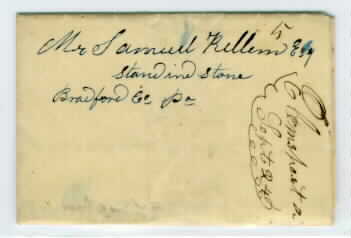 5
Mr Samuel Kellem Esq
Standind Stone
Bradford Co Pa
Sept 24